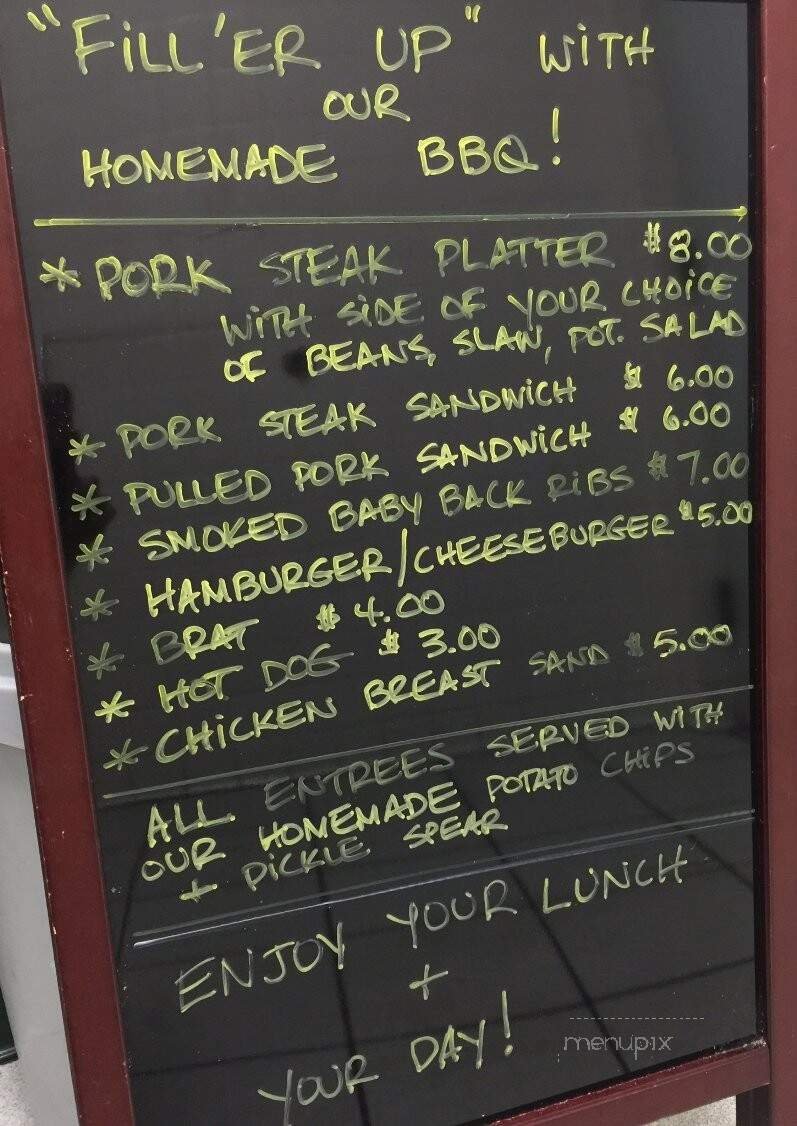 "FiLL'ER UP" WiTH
OUR
HOMEMADE BBQ!
* PORK STEAK PLATTER $8.00
WiTH SiDE OF YOUR CHOiCE
OF BEANS, SLAW, POT. SALAD
* PORK STEAK SANDWiCH $ 6.00
* PULLED PORK SANDWiCH $ 6.00
* SMOKED BABY BACK RiBS $ 7.00
* HAMBURGER/CHEESEBURGER $5.00
* BRAT $ 4.00
* HOT DOG $ 3.00
* CHiCKEN BREAST SAND $ 5.00
ALL ENTREES SERVED WiTH
OUR HOMEMADE POTATO CHiPS
+ PiCKLE SPEAR
ENJOY YOUR LUNCH
+
YOUR DAY!
menupix